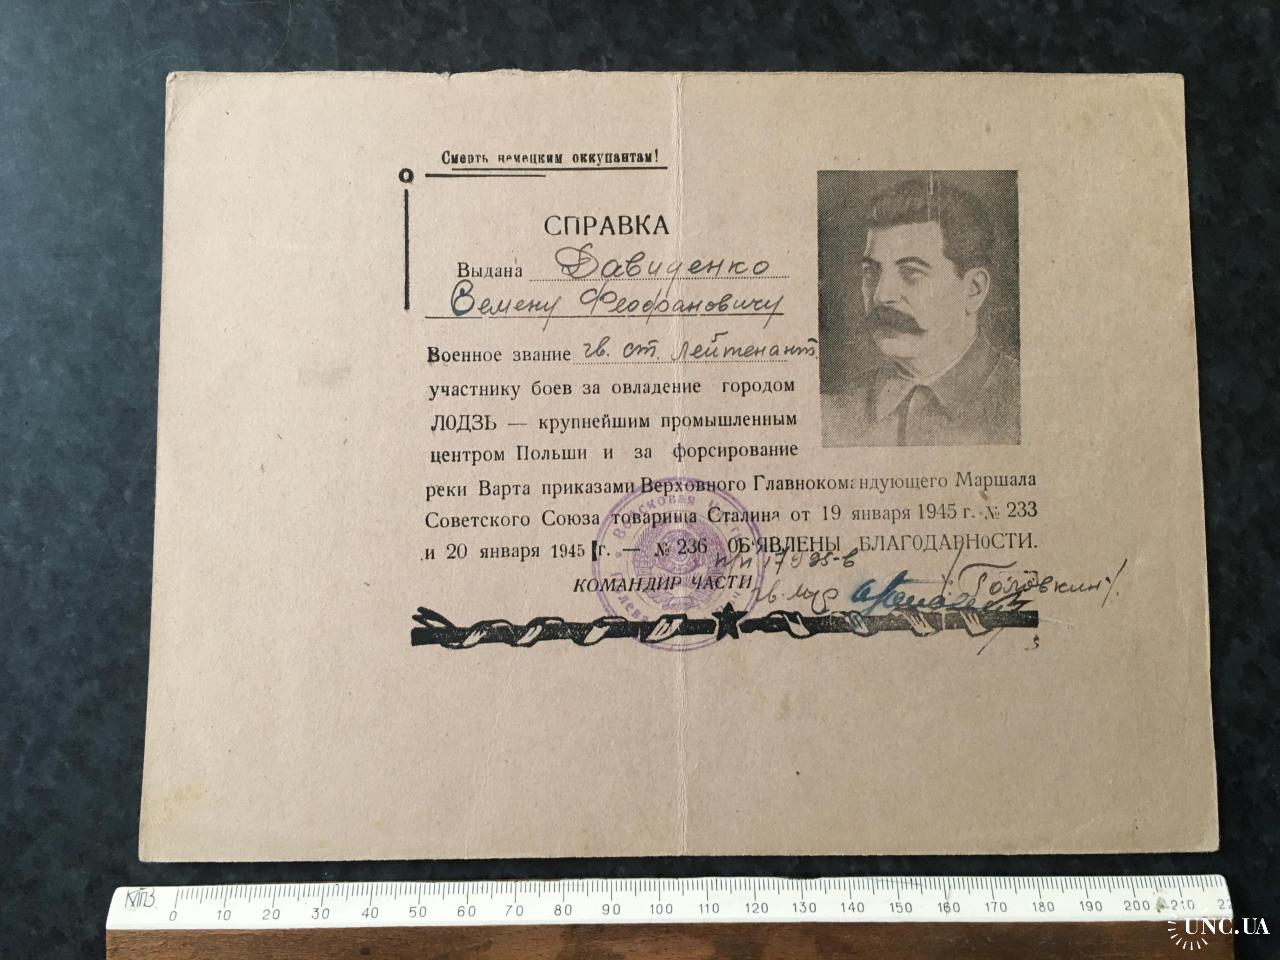 Смерть немецким оккупантам!
СПРАВКА
Выдана Давиденко
Семену Феофановичу
Военное звание гв. ст. лейтенант
участнику боев за овладение городом
ЛОДЗЬ — крупнейшим промышленным
центром Польши и за форсирование
реки Варта приказами Верховного Главнокомандующего Маршала
Советского Союза товарища Сталина от 19 января 1945 г. № 233
и 20 января 1945 г. — № 236 ОБ'ЯВЛЕНЫ БЛАГОДАРНОСТИ.
п/п
КОМАНДИР ЧАСТИ гв. /Головкин/
Войсковая
0 10 20 30 40 50 60 70 80 90 100 110 120 130 140 150 160 170 180 190 200 210 22
UNC.UA